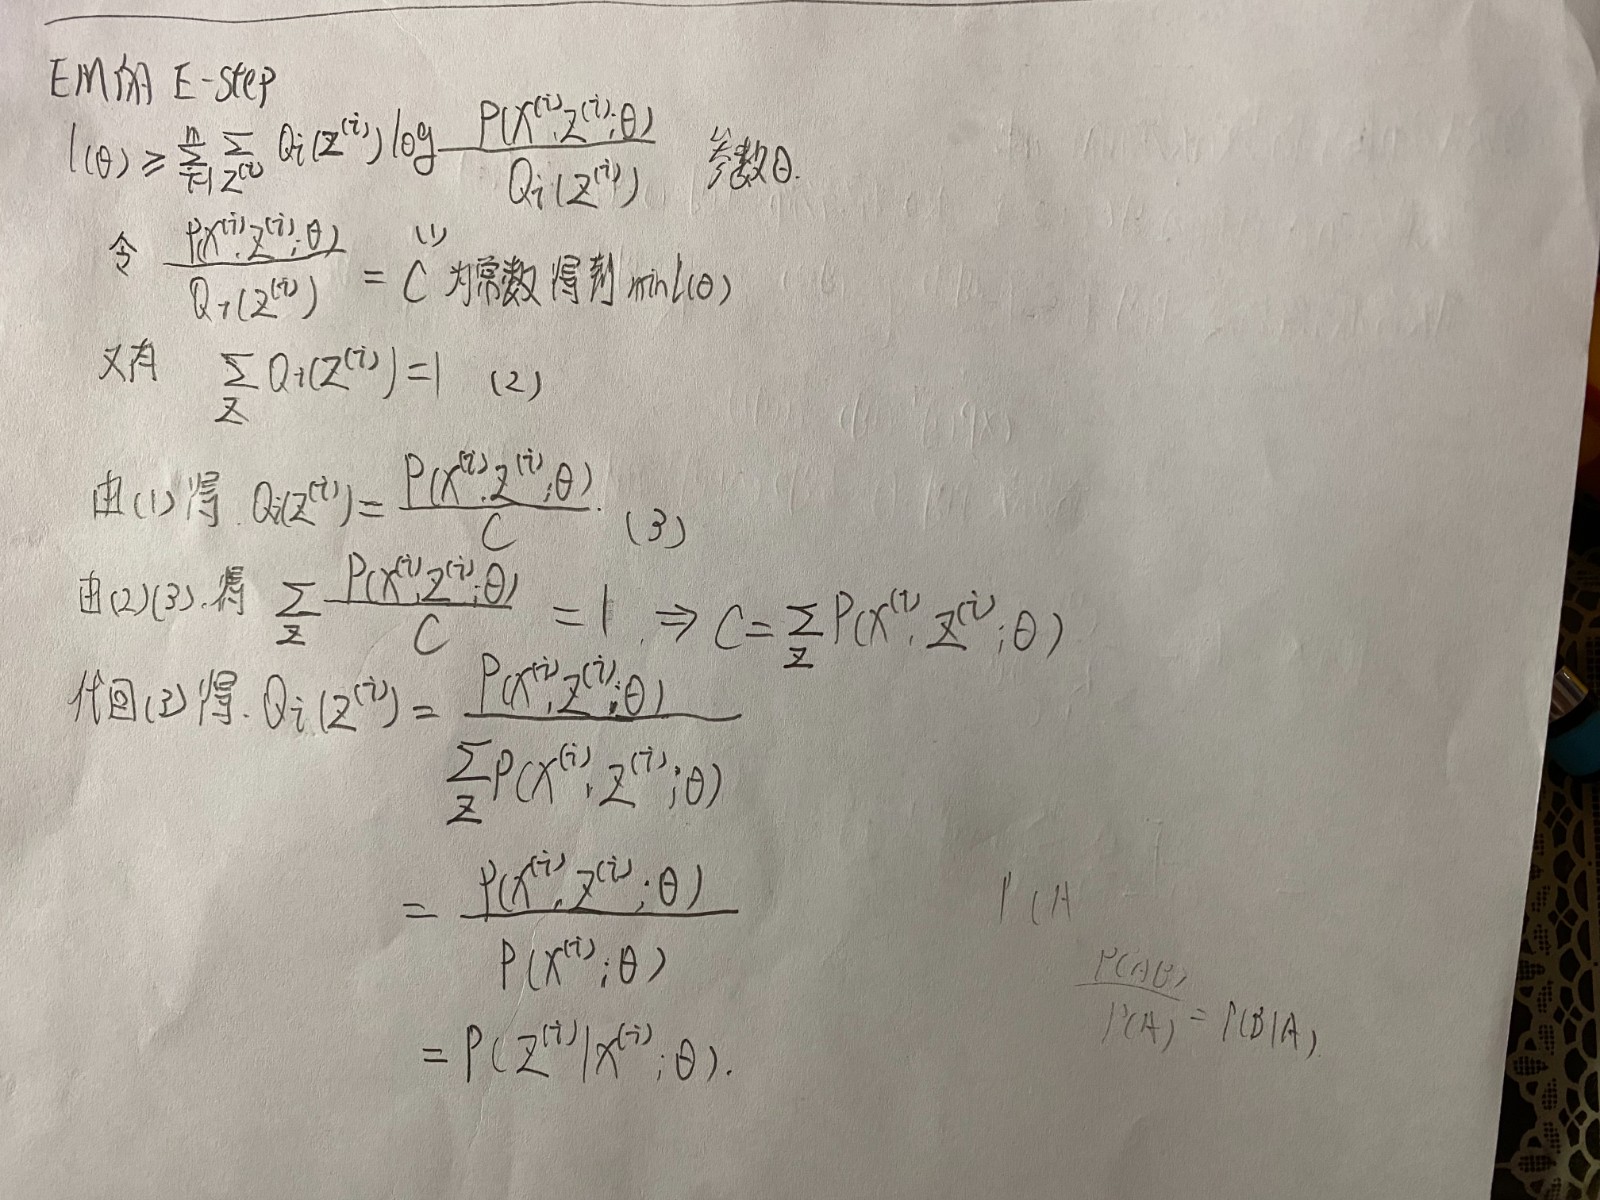 EM的 E-step
l(θ) ≥ \sum_{i=1}^{n} \sum_{z^{(i)}} Q_i(z^{(i)}) log \frac{P(x^{(i)}, z^{(i)}; θ)}{Q_i(z^{(i)})} 参数θ.
令 \frac{P(x^{(i)}, z^{(i)}; θ)}{Q_i(z^{(i)})} = C (1) 为常数 得到 min l(θ)
又有 \sum_{z} Q_i(z^{(i)}) = 1 (2)
由(1)得. Q_i(z^{(i)}) = \frac{P(x^{(i)}, z^{(i)}; θ)}{C}. (3)
由(2)(3).得 \sum_{z} \frac{P(x^{(i)}, z^{(i)}; θ)}{C} = 1. ⇒ C = \sum_{z} P(x^{(i)}, z^{(i)}; θ)
代回(3)得. Q_i(z^{(i)}) = \frac{P(x^{(i)}, z^{(i)}; θ)}{\sum_{z} P(x^{(i)}, z^{(i)}; θ)}
= \frac{P(x^{(i)}, z^{(i)}; θ)}{P(x^{(i)}; θ)}
= P(z^{(i)} | x^{(i)}; θ).
P(A
\frac{P(AB)}{P(A)} = P(B|A).